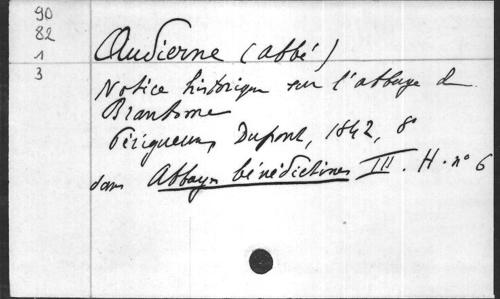 90
82
1
3
Audierne (abbé)
Notice historique sur l'abbaye de
Brantome
Périgueux, Dupont, 1842, 8°
dans Abbayes bénédictines III. H. n° 6